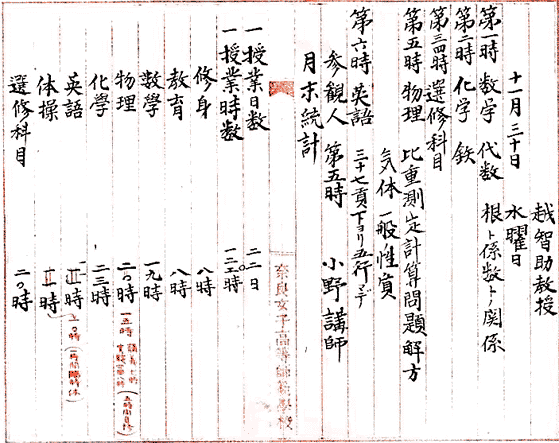 越智助教授
十一月三十日 水曜日
第一時 数学 代数 根ト係数トノ関係
第二時 化学 鉄
第三四時 選修科目
第五時 物理 比重測定計算問題解方
気体一般性質
第六時 英語 三十七頁下ヨリ五行マデ
参観人 第五時 小野講師
月末統計
奈良女子高等師範學校
一授業日数 二二日
一授業時数 一二二時
修身 八時
教育 八時
数學 一九時
物理 二〇時
化學 二三時
英語
体操 時
選修科目 二〇時